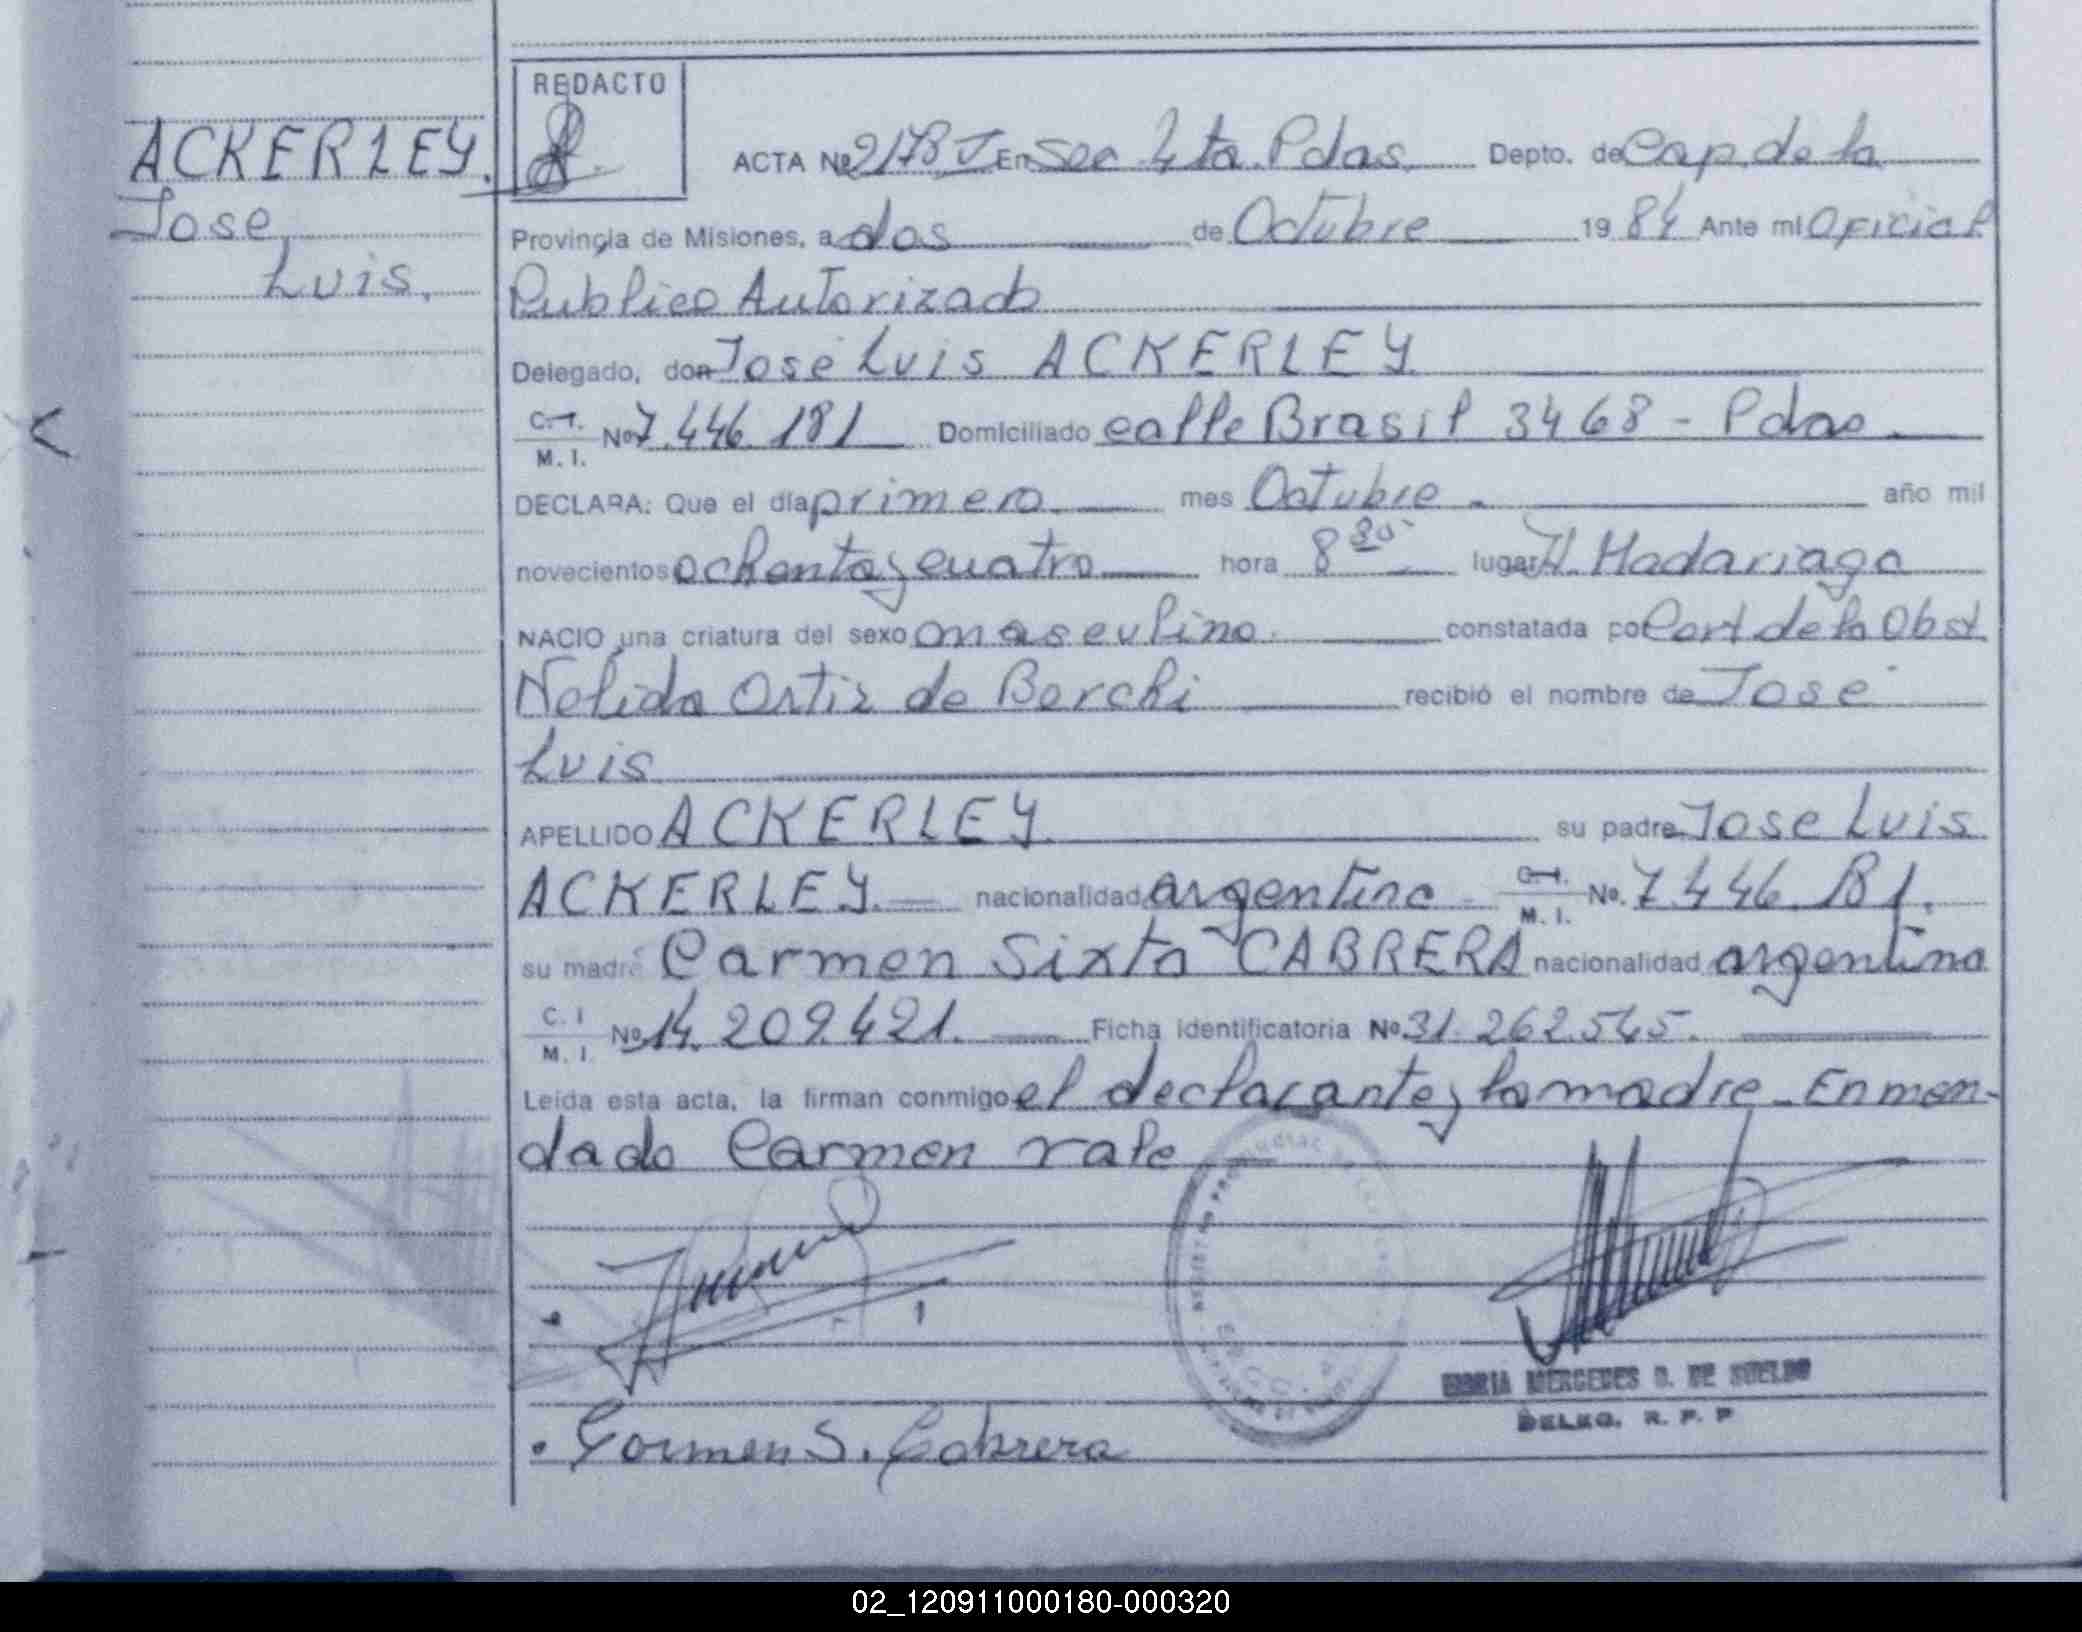 ACKERLEY.
Jose
Luis.
REDACTO
ACTA Nº 2178 En Sec 4ta. Pdas. Depto. de Cap. de la
Provincia de Misiones, a dos de Octubre 1984 Ante mi Oficial
Publico Autorizado
Delegado, don José Luis ACKERLEY
C. I. Nº 7.446.181 Domiciliado calle Brasil 3468 - Pdas.
M. I.
DECLARA: Que el día primero mes Octubre. año mil
novecientos ochenta y cuatro hora 8 30 lugar H. Madariaga
NACIO una criatura del sexo masculino. constatada por Cert de la Obst
Nelida Ortiz de Berchi recibió el nombre de José
Luis
APELLIDO ACKERLEY su padre Jose Luis
ACKERLEY. nacionalidad argentina C. I. Nº. 7.446.181.
M. I.
su madre Carmen Sixta CABRERA nacionalidad argentina
C. I
M. I. Nº 14.209.421. Ficha identificatoria Nº 31.262.545.
Leída esta acta, la firman conmigo el declarante y la madre - Enmen-
dado Carmen vale
Carmen S. Cabrera
MARIA MERCEDES D. DE SUELDO
DELEG. R. P. P
02_120911000180-000320